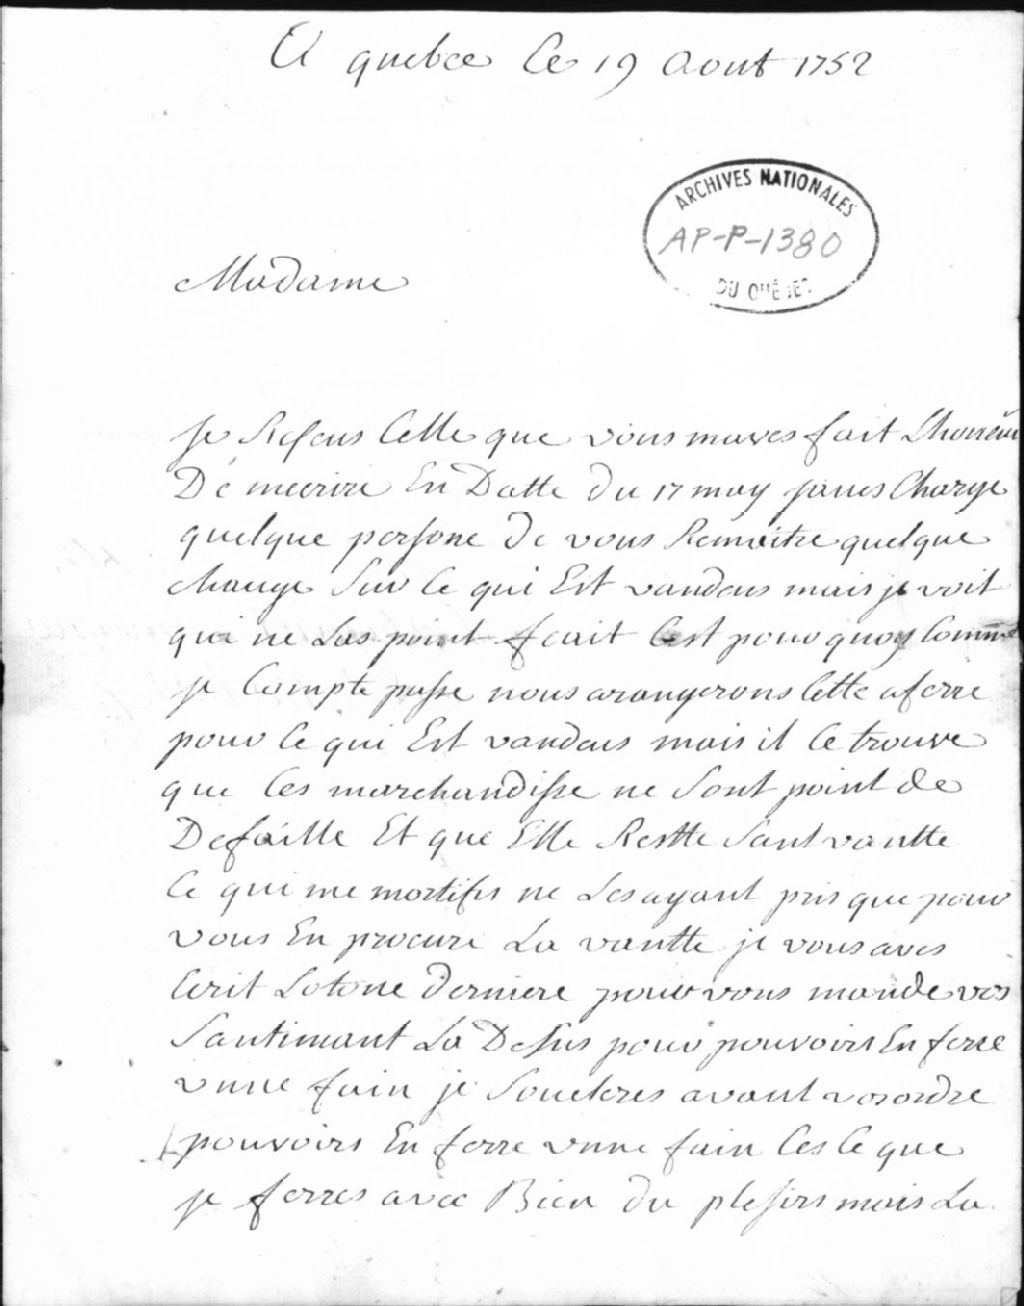 A quebce Ce 19 Aout 1752
ARCHIVES NATIONALES
AP-P-1380
DU QUÉBEC
Madame
je Resens Celle que vous maves fait Lhoneur
De mecrire En Datte du 17 may javes Charge
quelque persone de vous Remaitre quelque
chauge Sur Ce qui Est vandeus mais je voit
qui ne Las point fcait Cest pour quoy Comme
je Compte passe nous arangerons Cette aferre
pour Ce qui Est vandeus mais il Ce trouve
que Ces marchandisse ne Sont point de
Defaille Et que Elle Restte Sant vantte
Ce qui me mortifis ne Les ayant pris que pour
vous En procure La vantte je vous aves
Ecrit Lotone derniere pour vous mande vos
Santimant La Desus pour pouvoirs En ferre
vnne fain je Soueteres avant vos ordre
pouvoirs En ferre vnne fain Ces Ce que
je ferres avec Bien du plesirs mais La